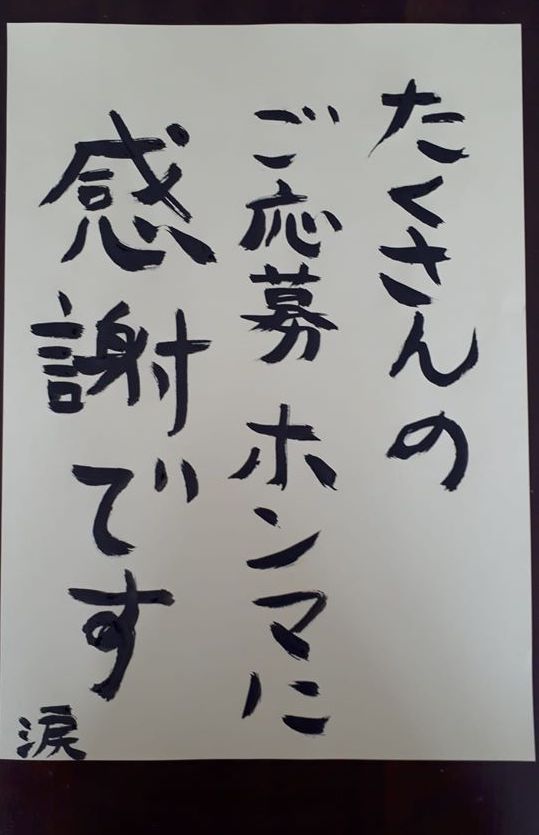 たくさんの
ご応募ホンマに
感謝です
涙